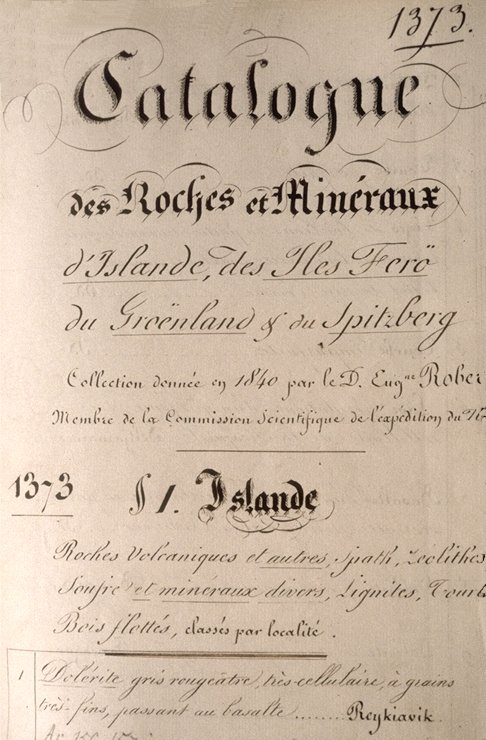 1373.
Catalogue
des Roches et Minéraux
d'Islande, des Iles Ferö
du Groënland & du Spitzberg
Collection donnée en 1840 par le D. Eugne Rober
Membre de la Commission Scientifique de l'expédition du
1373 § 1. Islande
Roches Volcaniques et autres, Spath, Zeolithes
Soufre et minéraux divers, Lignites, Tourb
Bois flottés, classés par localité.
1 Dolérite gris rougeâtre, très-cellulaire, à grains
très-fins, passant au basalte ....... Reykiavik.